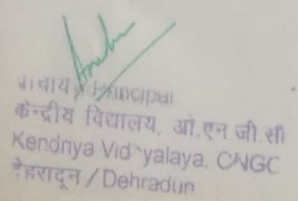 प्राचार्य / Principal
केन्द्रीय विद्यालय, ओ.एन जी.सी
Kendriya Vidyalaya, ONGC
देहरादून / Dehradun